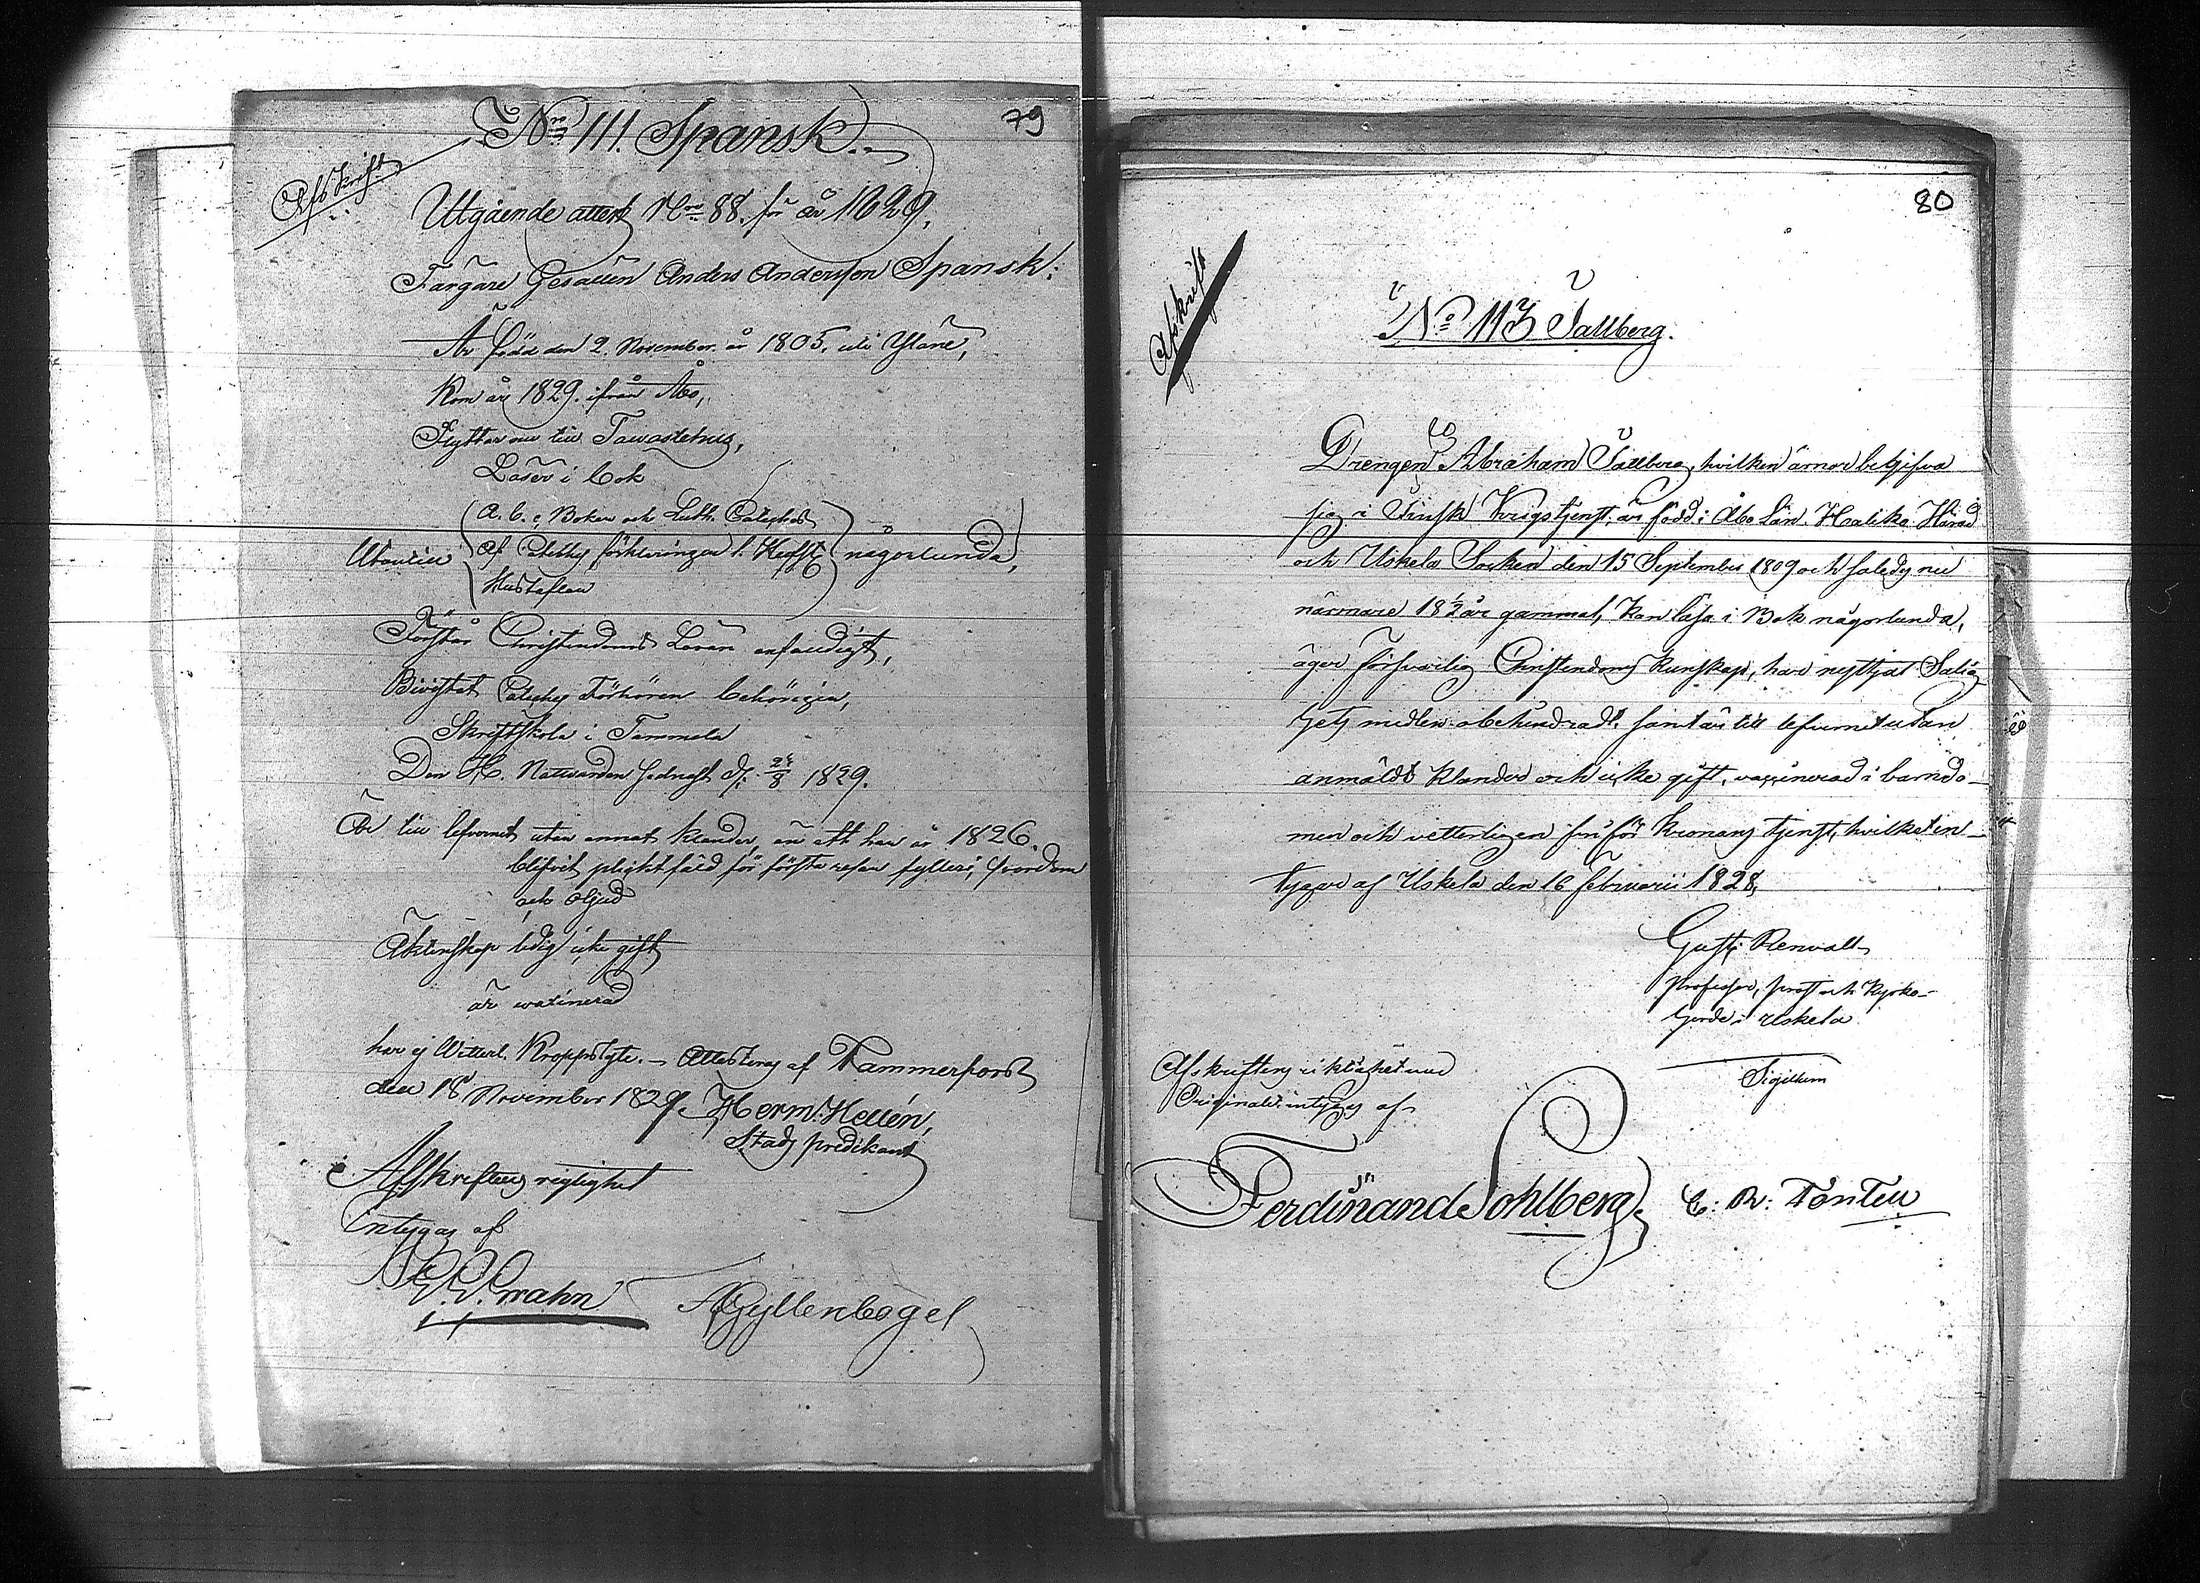 79
No 111. Spansk.
Afskrift
Utgående attest No 88. för år 1829.
Färgare Gesällen Anders Andersson Spansk:
Är född den 2. November år 1805. uti Yläne,
Kom år 1829. ifrån Åbo,
Flyttar nu till Tawastehus,
Läser i bok
A. b. c. Boken och Luth. Cateches
Utantill af Cateches förklaringen någorlunda,
Hustaflan
Förstår Christendoms Läran enfaldigt,
Bivistat Catechs Förhören behörigen,
Skriftskola i Tammela
Den H. Nattvarden sednast d. 24/8 1829.
Är till lefvernet utan annat klander, än att han år 1826.
blifvit pligtfäld för första resan fylleri, svordom
och oljud
Äktenskap ledig icke gift
är vaccinerad
har ej Witterl. Kroppslyte. Attesteras af Tammerfors
den 18 November 1829. Herm. Hellén,
Stads predikant
Afskriftens riglighet
intygar af
Krahn AGyllenbögel
80
Afskrift
No 113 Tallberg.
Drengen Abraham Tallberg, hvilken ärnar begifva
sig i Finsk Krigstjenst, är född i Åbo Län Haliko Härad
och Uskela Socken den 15 September 1809 och saledes nu
närmare 18 1/2 år gammal, kan läsa i Bok någorlunda,
äger försvarlig Christendoms kunskap, har nyttjat Salig-
hets medlen obehindradt, samt är till lefvernet utan
anmäldt klander och icke gift, vaccinerad i barndo-
men och vetterligen fri för Kronans tjenst, hvilket in-
tygar af Uskela den 16 Februarii 1828,
Gust: Renvall
Professor, prost och Kyrko-
herde i Uskela
Sigillum
Afskriftens riktighet med
Originalet intygas af
Ferdinand Sohlberg.